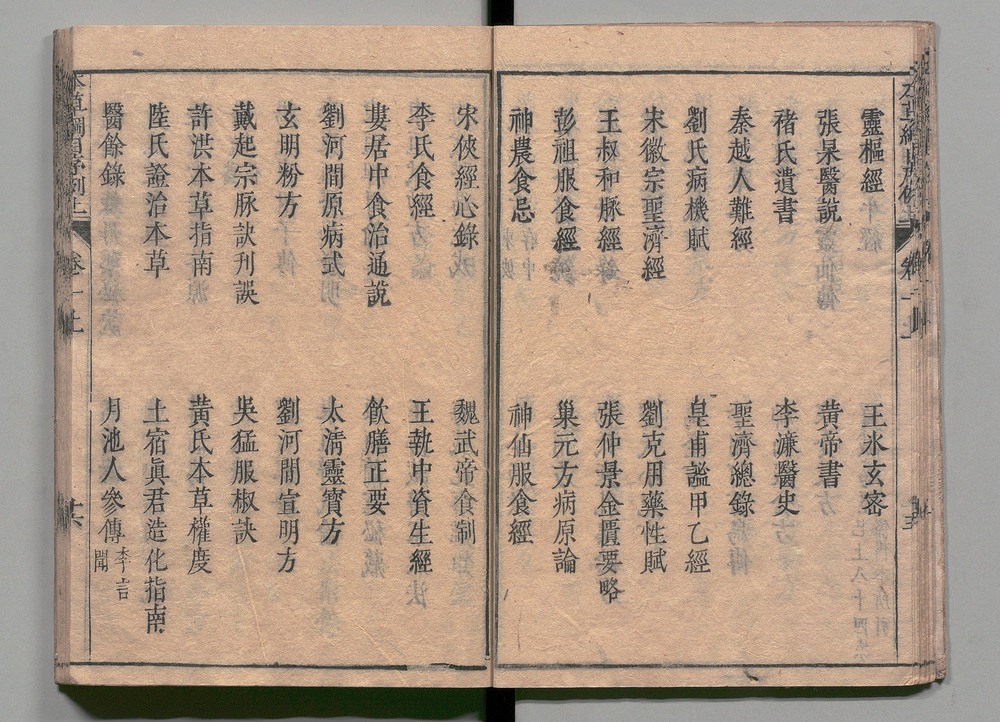 靈樞經
王氷玄密
張杲醫說
黃帝書
褚氏遺書
李濂醫史
秦越人難經
聖濟總錄
劉氏病機賦
皇甫謐甲乙經
宋徽宗聖濟經
劉克用藥性賦
王叔和脉經
張仲景金匱要略
彭祖服食經
巢元方病原論
神農食忌
神仙服食經
宋俠經心錄
魏武帝食制
李氏食經
王執中資生經
婁居中食治通說
飲膳正要
劉河間原病式
太清靈寶方
玄明粉方
劉河間宣明方
戴起宗脉訣刋誤
吳猛服椒訣
許洪本草指南
黃氏本草權度
陸氏證治本草
土宿眞君造化指南
醫餘錄
月池人參傳 李言聞
本草綱目序例上
卷一上